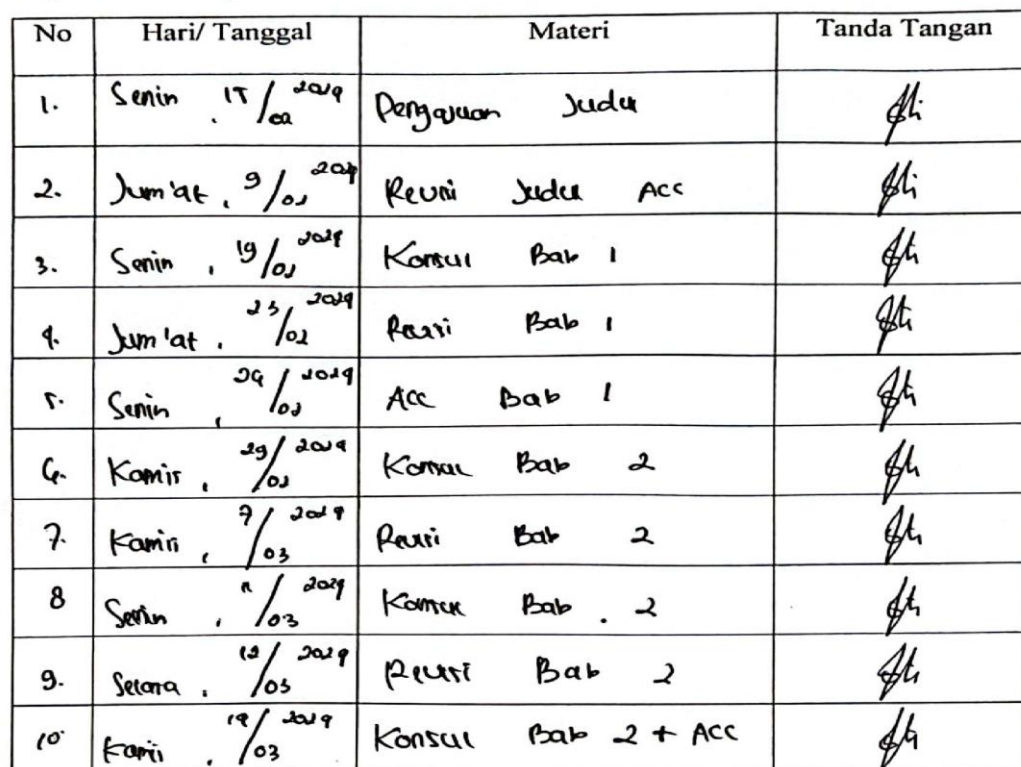 No Hari/ Tanggal Materi Tanda Tangan
1. Senin, 15/02 2024 Pengajuan Judul
2. Jum'at, 9/02 2024 Revisi Judul Acc
3. Senin, 19/02 2024 Konsul Bab 1
4. Jum'at, 23/02 2024 Revisi Bab 1
5. Senin, 26/02 2024 Acc Bab 1
6. Kamis, 29/02 2024 Konsul Bab 2
7. Kamis, 7/03 2024 Revisi Bab 2
8 Senin, 11/03 2024 Konsul Bab 2
9. Selasa, 12/03 2024 Revisi Bab 2
10 Kamis, 14/03 2024 Konsul Bab 2 + Acc